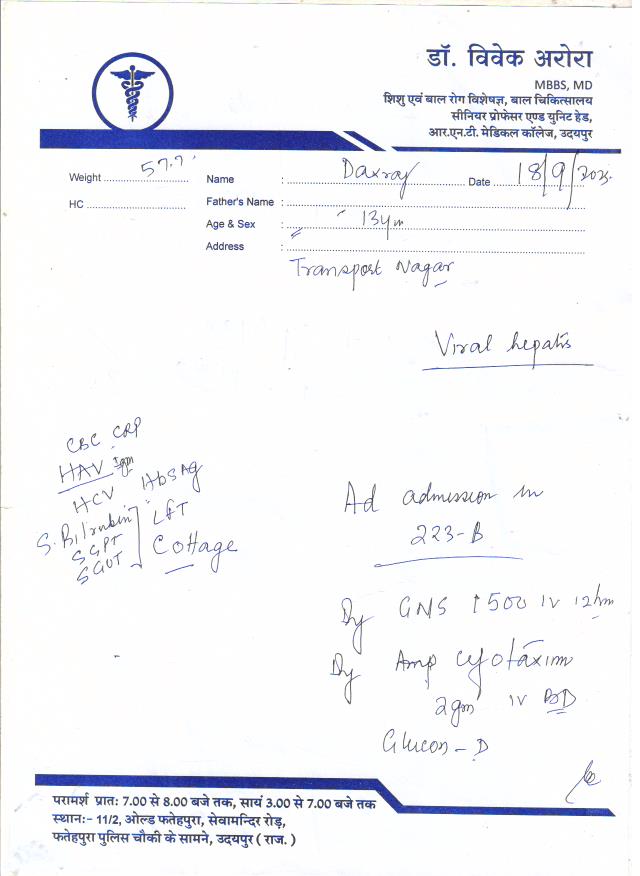 डॉ. विवेक अरोरा
MBBS, MD
शिशु एवं बाल रोग विशेषज्ञ, बाल चिकित्सालय
सीनियर प्रोफेसर एण्ड युनिट हेड,
आर.एन.टी. मेडिकल कॉलेज, उदयपुर
Weight 57.7
HC
Name : Daxraj Date 18/9/2025
Father's Name :
Age & Sex : 13ym
Address :
Transport Nagar
Viral hepatis
CBC CRP
HAV Igm
HCV HbSAg
S. Bilirubin
SGPT
SGOT
LFT
Cottage
Ad admission in
223-B
GNS 500 IV 12hm
Amp cyotaxim
2gm IV BD
Glucon-D
परामर्श प्रातः 7.00 से 8.00 बजे तक, सायं 3.00 से 7.00 बजे तक
स्थान:- 11/2, ओल्ड फतेहपुरा, सेवामन्दिर रोड़,
फतेहपुरा पुलिस चौकी के सामने, उदयपुर ( राज. )